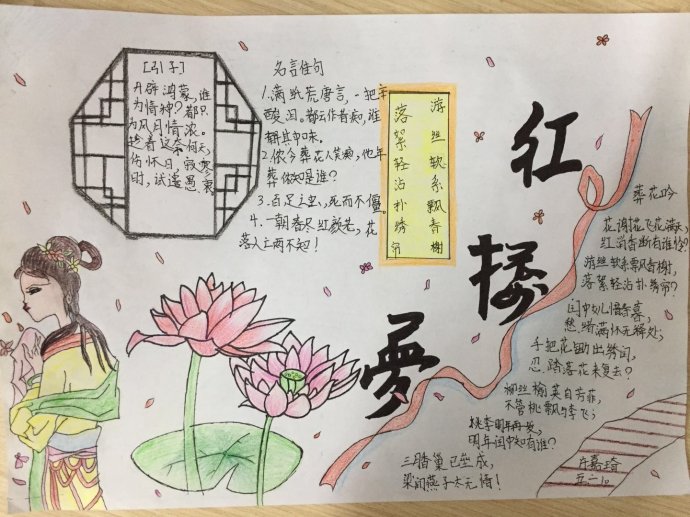 [引子]
开辟鸿蒙,谁
为情神?都只
为风月情浓。
趁着这奈何天,
伤怀日,寂寥
时,试遣愚衷
名言佳句
1.满纸荒唐言,一把辛
酸泪。都云作者痴,谁
解其中味。
2.侬今葬花人笑痴,他年
葬侬知是谁?
3.百足之虫,死而不僵。
4.一朝春尽红颜老,花
落人亡两不知!
游丝软系飘香榭
落絮轻沾扑绣帘
红楼梦
葬花吟
花谢花飞花满天,
红消香断有谁怜?
游丝软系飘香榭,
落絮轻沾扑绣帘?
闺中女儿惜春暮,
愁绪满怀无释处;
手把花锄出绣闺,
忍踏落花来复去?
柳丝榆荚自芳菲,
不管桃飘与李飞;
桃李明年再发,
明年闺中知有谁?
三月香巢已垒成,
梁间燕子太无情!
许嘉琦